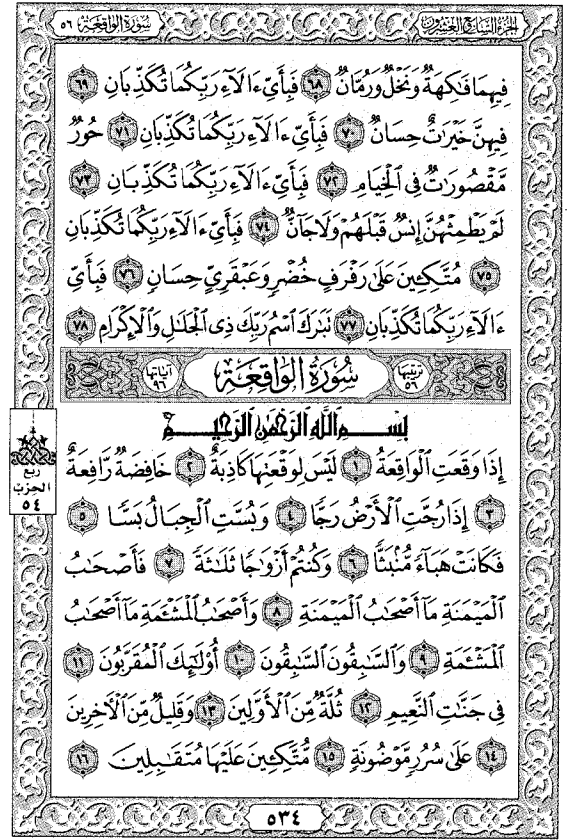 سورة الواقعة ٥٦
الجزء السابع والعشرون
فِيهِمَا فَٰكِهَةٌ وَنَخْلٌ وَرُمَّانٌ ٦٨ فَبِأَىِّ ءَالَآءِ رَبِّكُمَا تُكَذِّبَانِ ٦٩
فِيهِنَّ خَيْرَٰتٌ حِسَانٌ ٧٠ فَبِأَىِّ ءَالَآءِ رَبِّكُمَا تُكَذِّبَانِ ٧١ حُورٌ
مَّقْصُورَٰتٌ فِى ٱلْخِيَامِ ٧٢ فَبِأَىِّ ءَالَآءِ رَبِّكُمَا تُكَذِّبَانِ ٧٣
لَمْ يَطْمِثْهُنَّ إِنسٌ قَبْلَهُمْ وَلَا جَآنٌّ ٧٤ فَبِأَىِّ ءَالَآءِ رَبِّكُمَا تُكَذِّبَانِ
٧٥ مُتَّكِـِٔينَ عَلَىٰ رَفْرَفٍ خُضْرٍ وَعَبْقَرِىٍّ حِسَانٍ ٧٦ فَبِأَىِّ
ءَالَآءِ رَبِّكُمَا تُكَذِّبَانِ ٧٧ تَبَٰرَكَ ٱسْمُ رَبِّكَ ذِى ٱلْجَلَٰلِ وَٱلْإِكْرَامِ ٧٨
ترتيبها ٥٦ سُورَةُ الْوَاقِعَةِ آياتها ٩٦
بِسْمِ ٱللَّهِ ٱلرَّحْمَٰنِ ٱلرَّحِيمِ
إِذَا وَقَعَتِ ٱلْوَاقِعَةُ ١ لَيْسَ لِوَقْعَتِهَا كَاذِبَةٌ ٢ خَافِضَةٌ رَّافِعَةٌ
٣ إِذَا رُجَّتِ ٱلْأَرْضُ رَجًّا ٤ وَبُسَّتِ ٱلْجِبَالُ بَسًّا ٥
فَكَانَتْ هَبَآءً مُّنۢبَثًّا ٦ وَكُنتُمْ أَزْوَٰجًا ثَلَٰثَةً ٧ فَأَصْحَٰبُ
ٱلْمَيْمَنَةِ مَآ أَصْحَٰبُ ٱلْمَيْمَنَةِ ٨ وَأَصْحَٰبُ ٱلْمَشْـَٔمَةِ مَآ أَصْحَٰبُ
ٱلْمَشْـَٔمَةِ ٩ وَٱلسَّٰبِقُونَ ٱلسَّٰبِقُونَ ١٠ أُو۟لَٰٓئِكَ ٱلْمُقَرَّبُونَ ١١
فِى جَنَّٰتِ ٱلنَّعِيمِ ١٢ ثُلَّةٌ مِّنَ ٱلْأَوَّلِينَ ١٣ وَقَلِيلٌ مِّنَ ٱلْءَاخِرِينَ
١٤ عَلَىٰ سُرُرٍ مَّوْضُونَةٍ ١٥ مُّتَّكِـِٔينَ عَلَيْهَا مُتَقَٰبِلِينَ ١٦
ربع
الحزب
٥٤
٥٣٤